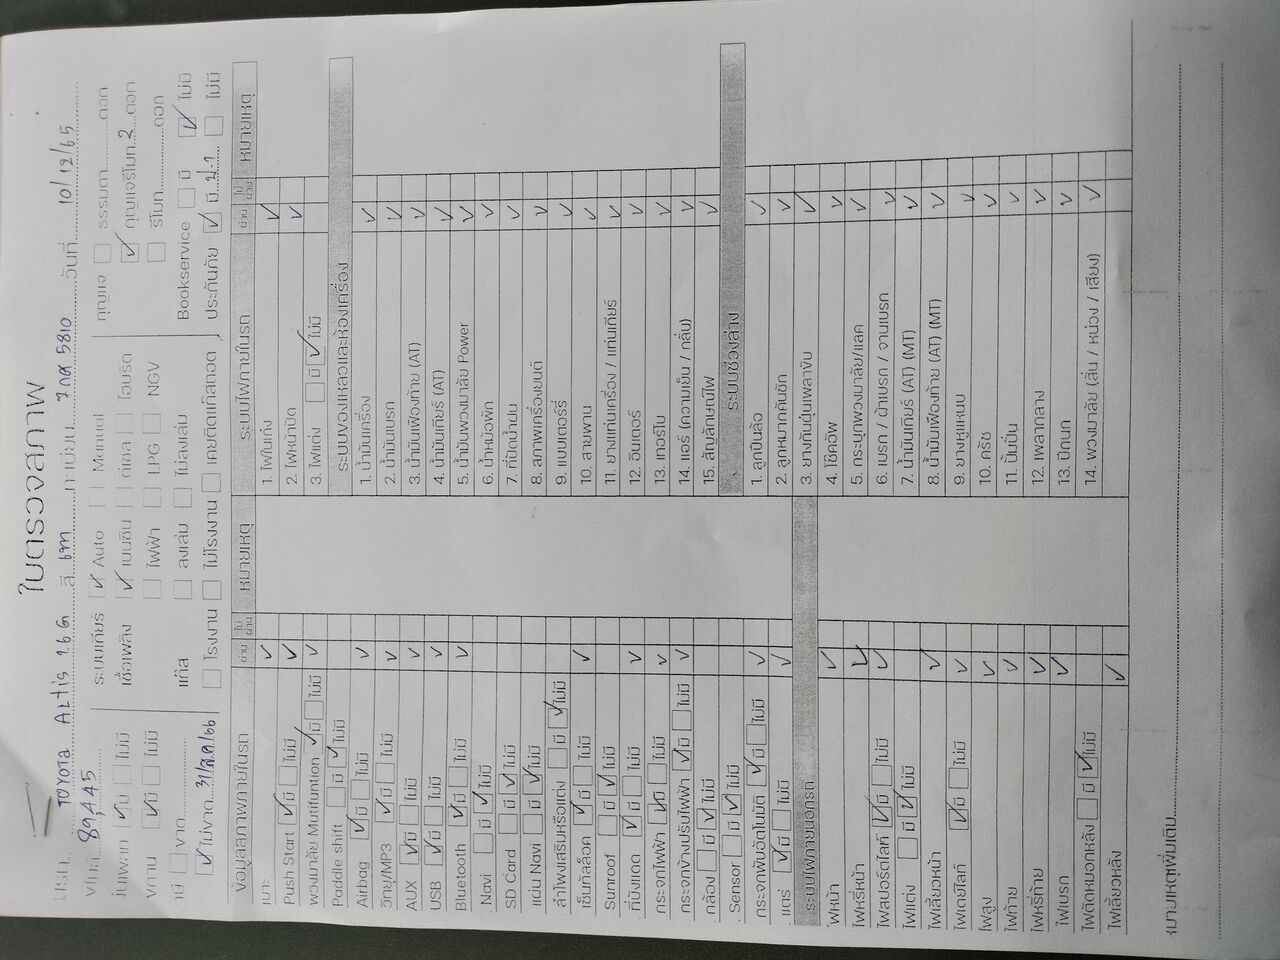 ใบตรวจสภาพ
TOYOTA ALtis 1.6 G สี เทา ทะเบียน 5810 วันที่ 10/12/65
89,445 ระบบเกียร์ Auto Manual กุญแจ ธรรมดา ดอก
ไม่มี เชื้อเพลิง เบนซิน ดีเซล ไฮบริด กุญแจรีโมท 2 ดอก
มี ไม่มี ไฟฟ้า LPG NGV รีโมท ดอก
ขาด แก๊ส ลงเล่ม ไม่ลงเล่ม Bookservice มี ไม่มี
ไม่ขาด 31/ส.ค/66 โรงงาน ไม่โรงงาน เคยติดแก๊สถอด ประกันภัย มี ป.1 ไม่มี
ข้อมูลสภาพภายในรถ ผ่าน ไม่ผ่าน หมายเหตุ
เบาะ
Push Start มี ไม่มี
พวงมาลัย Mutifuntion มี ไม่มี
Paddle shift มี ไม่มี
Airbag มี ไม่มี
วิทยุ/MP3 มี ไม่มี
AUX มี ไม่มี
USB มี ไม่มี
Bluetooth มี ไม่มี
Navi มี ไม่มี
SD Card มี ไม่มี
แผ่น Navi มี ไม่มี
ลำโพงเสริมหรือแต่ง มี ไม่มี
เซ็นทัลล็อค มี ไม่มี
Sunroof มี ไม่มี
ที่บังแดด มี ไม่มี
กระจกไฟฟ้า มี ไม่มี
กระจกข้างปรับไฟฟ้า มี ไม่มี
กล้อง มี ไม่มี
Sensor มี ไม่มี
กระจกพับอัตโนมัติ มี ไม่มี
แตร์ มี ไม่มี
ระบบไฟภายนอกรถ
ไฟหน้า
ไฟหรี่หน้า
ไฟสปอร์ตไลท์ มี ไม่มี
ไฟแต่ง มี ไม่มี
ไฟเลี้ยวหน้า
ไฟเดย์ไลท์ มี ไม่มี
ไฟสูง
ไฟท้าย
ไฟหรี่ท้าย
ไฟเบรก
ไฟตัดหมอกหลัง มี ไม่มี
ไฟเลี้ยวหลัง
ระบบไฟภายในรถ ผ่าน ไม่ผ่าน หมายเหตุ
1. ไฟในเก๋ง
2. ไฟหน้าปัด
3. ไฟแต่ง มี ไม่มี
ระบบของเหลวและห้องเครื่อง
1. น้ำมันเครื่อง
2. น้ำมันเบรก
3. น้ำมันเฟืองท้าย (AT)
4. น้ำมันเกียร์ (AT)
5. น้ำมันพวงมาลัย Power
6. น้ำหม้อพัก
7. ที่ปัดน้ำฝน
8. สภาพเครื่องยนต์
9. แบตเตอร์รี่
10. สายพาน
11. ยางแท่นเครื่อง / แท่นเกียร์
12. อินเตอร์
13. เทอร์โบ
14. แอร์ (ความเย็น / กลิ่น)
15. สัญลักษณ์ไฟ
ระบบช่วงล่าง
1. ลูกปืนล้อ
2. ลูกหมากคันชัก
3. ยางกันฝุ่นเพลาขับ
4. โช๊คอัพ
5. กระปุกพวงมาลัย/แลค
6. เบรก / ผ้าเบรก / จานเบรก
7. น้ำมันเกียร์ (AT) (MT)
8. น้ำมันเฟืองท้าย (AT) (MT)
9. ยางหูแหนบ
10. ครัช
11. ปั๊มปั่น
12. เพลากลาง
13. ปีกนก
14. พวงมาลัย (สั่น / หน่วง / เสียง)
หมายเหตุเพิ่มเติม